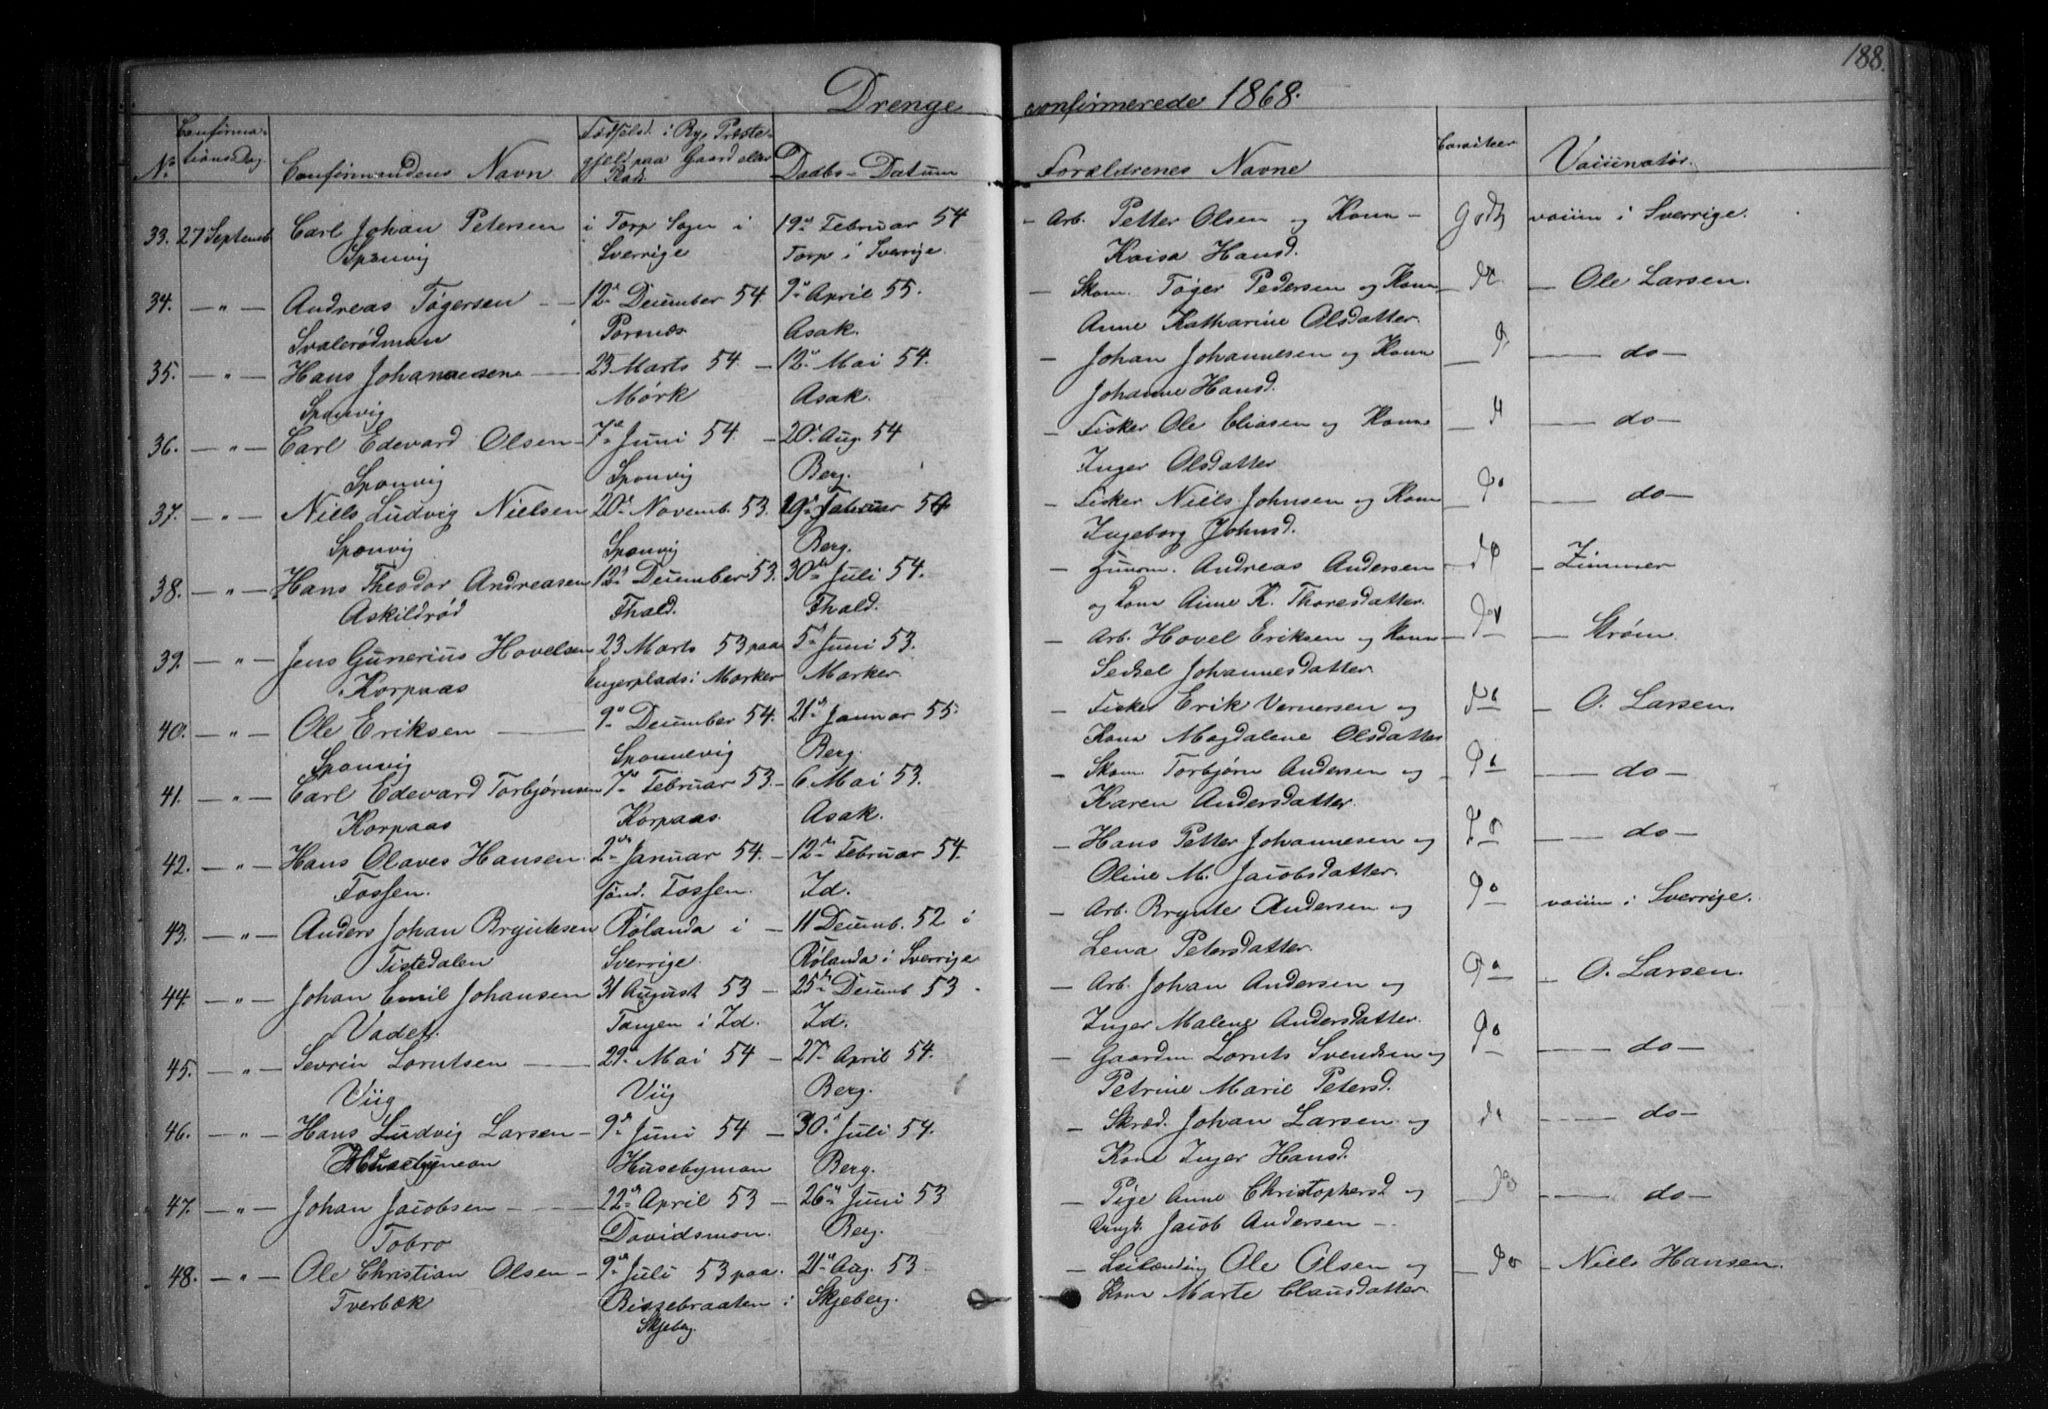 188.
Drenge confirmerede 1868.
No Confirmationsdag. Confirmandens Navn Fødselsd. i By, Præstegjeld paa Gaard eller Plads Daabs-Datum Forældrenes Navne Caracteer Vaccinatør.
33. 27 Septemb. Carl Johan Petersen i Torp Sogn i 19de Februar 54 – Arb. Petter Olsen og Kone – godt vaccin i Sverrige.
Sponvig Sverrige Torp i Sverrige. Kaisa Hansd.
34. – " – Andreas Tøgersen – 12te December 54. 9de April 55. – Skom. Tøger Pedersen og Kone – do – Ole Larsen.
Svalerødmon Asak. Anne Katharine Olsdatter.
35. – " – Hans Johannesen – 23 Marts 54 – 12te Mai 54. – Johan Johannesen og Kone – do – do –
Sponvig Mørk Asak. Johanne Hansd.
36. – " – Carl Edevard Olsen – 7de Juni 54. – 20de Aug. 54 – Fisker Ole Eliasen og Kone – do – do –
Sponvig Sponvig Berg. Inger Olsdatter
37. – " – Niels Ludvig Nielsen 20de Novemb. 53. 19de Februar 54 – Fisker Niels Johnsen og Kone do – do –
Sponvig Sponvig Berg. Ingeborg Johnsd.
38. – " – Hans Theodor Andreasen 12te December 53. 30te Juli 54. – Andreas Andersen – do – Zimmer
Askildrød Fhald. Fhald. og Kone Anne K. Thoresdatter.
39. – " – Jens Gunerius Hovelsen 23 Marts 53 paa 5te Juni 53. – Arb. Hovel Eriksen og Kone – do – Strøm.
Korpaas Engerplads i Marker Marker Sedsel Johannesdatter
40. – " – Ole Eriksen – 9de December 54. 21de Januar 55. – Fisker Erik Vernersen og do – O. Larsen.
Sponvig Sponnevig Berg. Kone Magdalene Olsdatter
41. – " – Carl Edevard Torbjørnsen 7de Februar 53. – 6 Mai 53. – Skom. Torbjørn Andersen og – do – do –
Korpaas Korpaas. Asak. Karen Andersdatter.
42. – " – Hans Olaves Hansen 2den Januar 54. – 12te Februar 54. – Hans Petter Johannesen og do – do –
Fossen. sønd. Fossen. Id. Oline M. Jacobsdatter.
43. – " – Anders Johan Bryntesen Rølanda i – 11 Decemb. 52 i – Arb. Brynte Andersen og do vaccin i Sverrige.
Tistedalen Sverrige. Rølanda i Sverrige Lena Petersdatter.
44. – " – Johan Emil Johansen 31 August 53 – 25de Decemb 53 – Arb. Johan Andersen og do – O. Larsen.
Vadet. Tangen i Id. Id. Inger Malene Andersdatter.
45. – " – Sevrin Lorntsen – 29de Mai 54 – 27de April 54. – Gaardm. Lornts Svendsen og do – do –
Viig Viig Berg. Petrine Marie Petersd.
46. – " – Hans Ludvig Larsen – 9de Juni 54 – 30te Juli 54. – Skræd. Johan Larsen og do – do –
Husebymon Husebymon Berg. Kone Inger Hansd.
47. – " – Johan Jacobsen – 22de April 53 – 26de Juni 53 – Pige Anne Christophersd og – do – do –
Tobro Davidsmon. Berg. Ungk. Jacob Andersen –
48. – " – Ole Christian Olsen – 9de Juli 53 paa 21de Aug. 53. – Leilænding Ole Olsen og – do – Niels Hansen.
Tverbæk Bissebraaten i Skjeberg. Kone Marte Clausdatter.
Skjeberg.